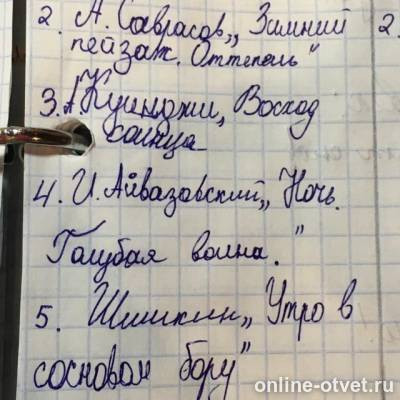 2. А. Саврасов „Зимний 2.
пейзаж. Оттепель"
3. А. Куинджи, Восход
солнца
4. И. Айвазовский „Ночь.
Голубая волна."
5. Шишкин „Утро в
сосновом бору"
online-otvet.ru